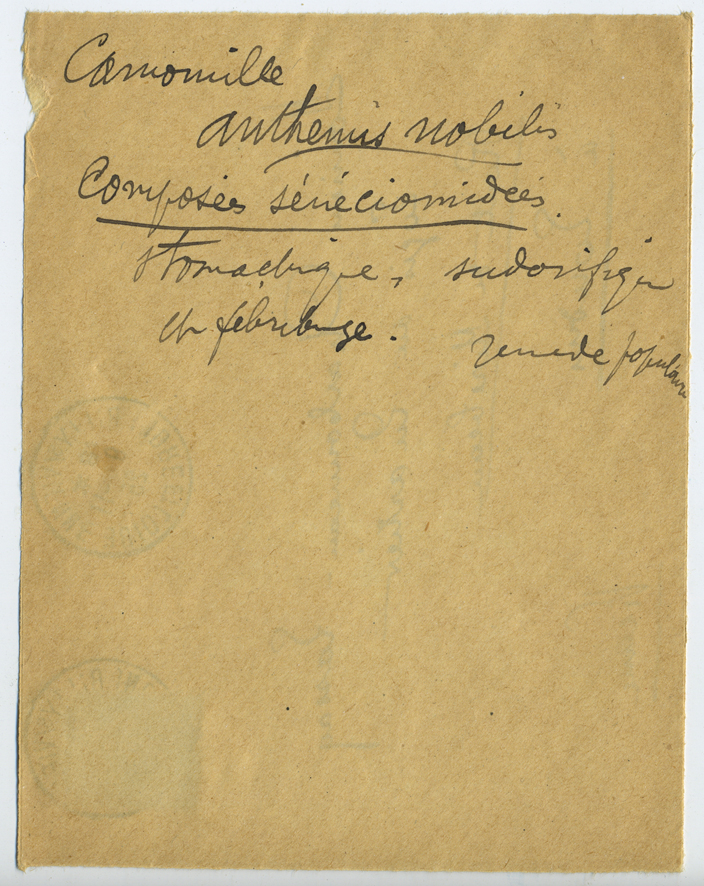 Camomille
anthemis nobilis
Composées sénécionidées
stomachique, sudorifique
et fébrifuge.
remede populaire